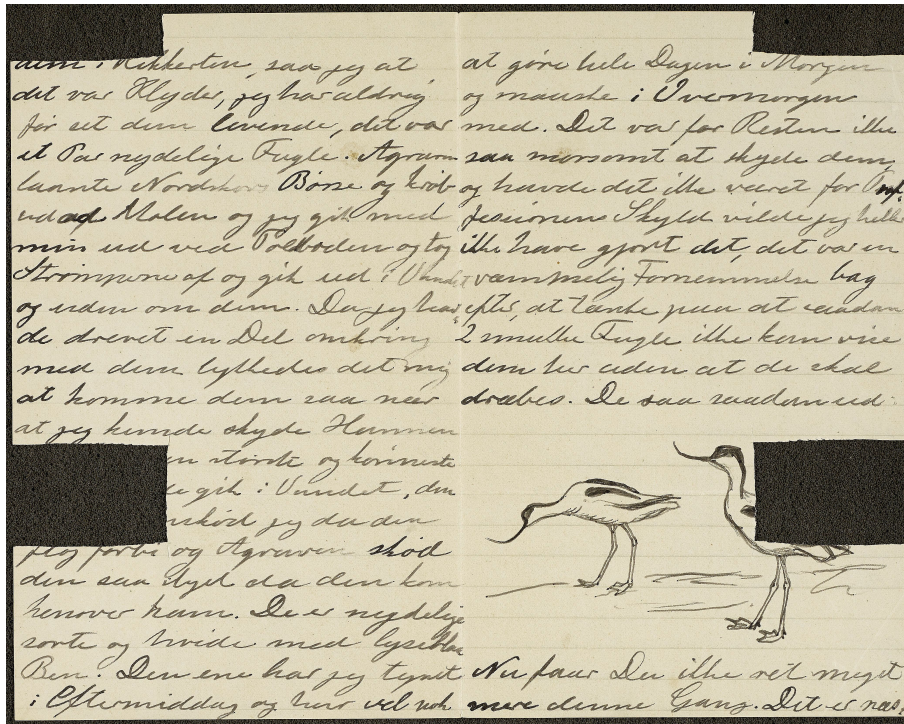 dem i Kikkerten, saa jeg at
det var Klyder, jeg har aldrig
før set dem levende, det var
et Par nydelige Fugle. Agraven
laante Nordskovs Bøsse og krøb
ud ad Molen og jeg gik med
min ud ved Toldboden og tog
Strømperne af og gik ud i Vandet
og uden om dem. Da jeg hav-
de drevet en Del omkring
med dem lykkedes det mig
at komme dem saa nær
at jeg kunde skyde Hannen
n største og kønneste
de gik i Vandet, den
nskød jeg da den
fløj forbi og Agraven skød
den saa dyet da den kom
henover ham. De er nydelige
sorte og hvide med lyseblaa
Ben. Den ene har jeg tegnet
i Eftermiddag og har vel nok
at gøre hele Dagen i Morgen
og maaske i Overmorgen
med. Det var for Resten ikke
saa morsomt at skyde dem,
og havde det ikke været for Prof-
fesionens Skyld vilde jeg heller
ikke have gjort det, det var en
væmmelig Fornemmelse bag
efter, at tænke paa at saadan
2 smukke Fugle ikke kan vise
dem her uden at de skal
dræbes. De saa saadan ud:
Nu faar Du ikke ret meget
mere denne Gang. Det er næs-